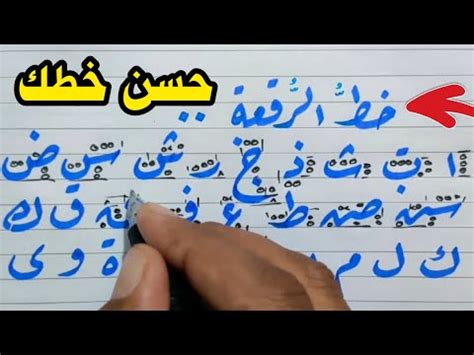 حسن خطك
خطُّ الرُّقعة
ا ب ث ذ خ ر ش س ض
ط ع ف ة ق ك
ك ل م ة و ى